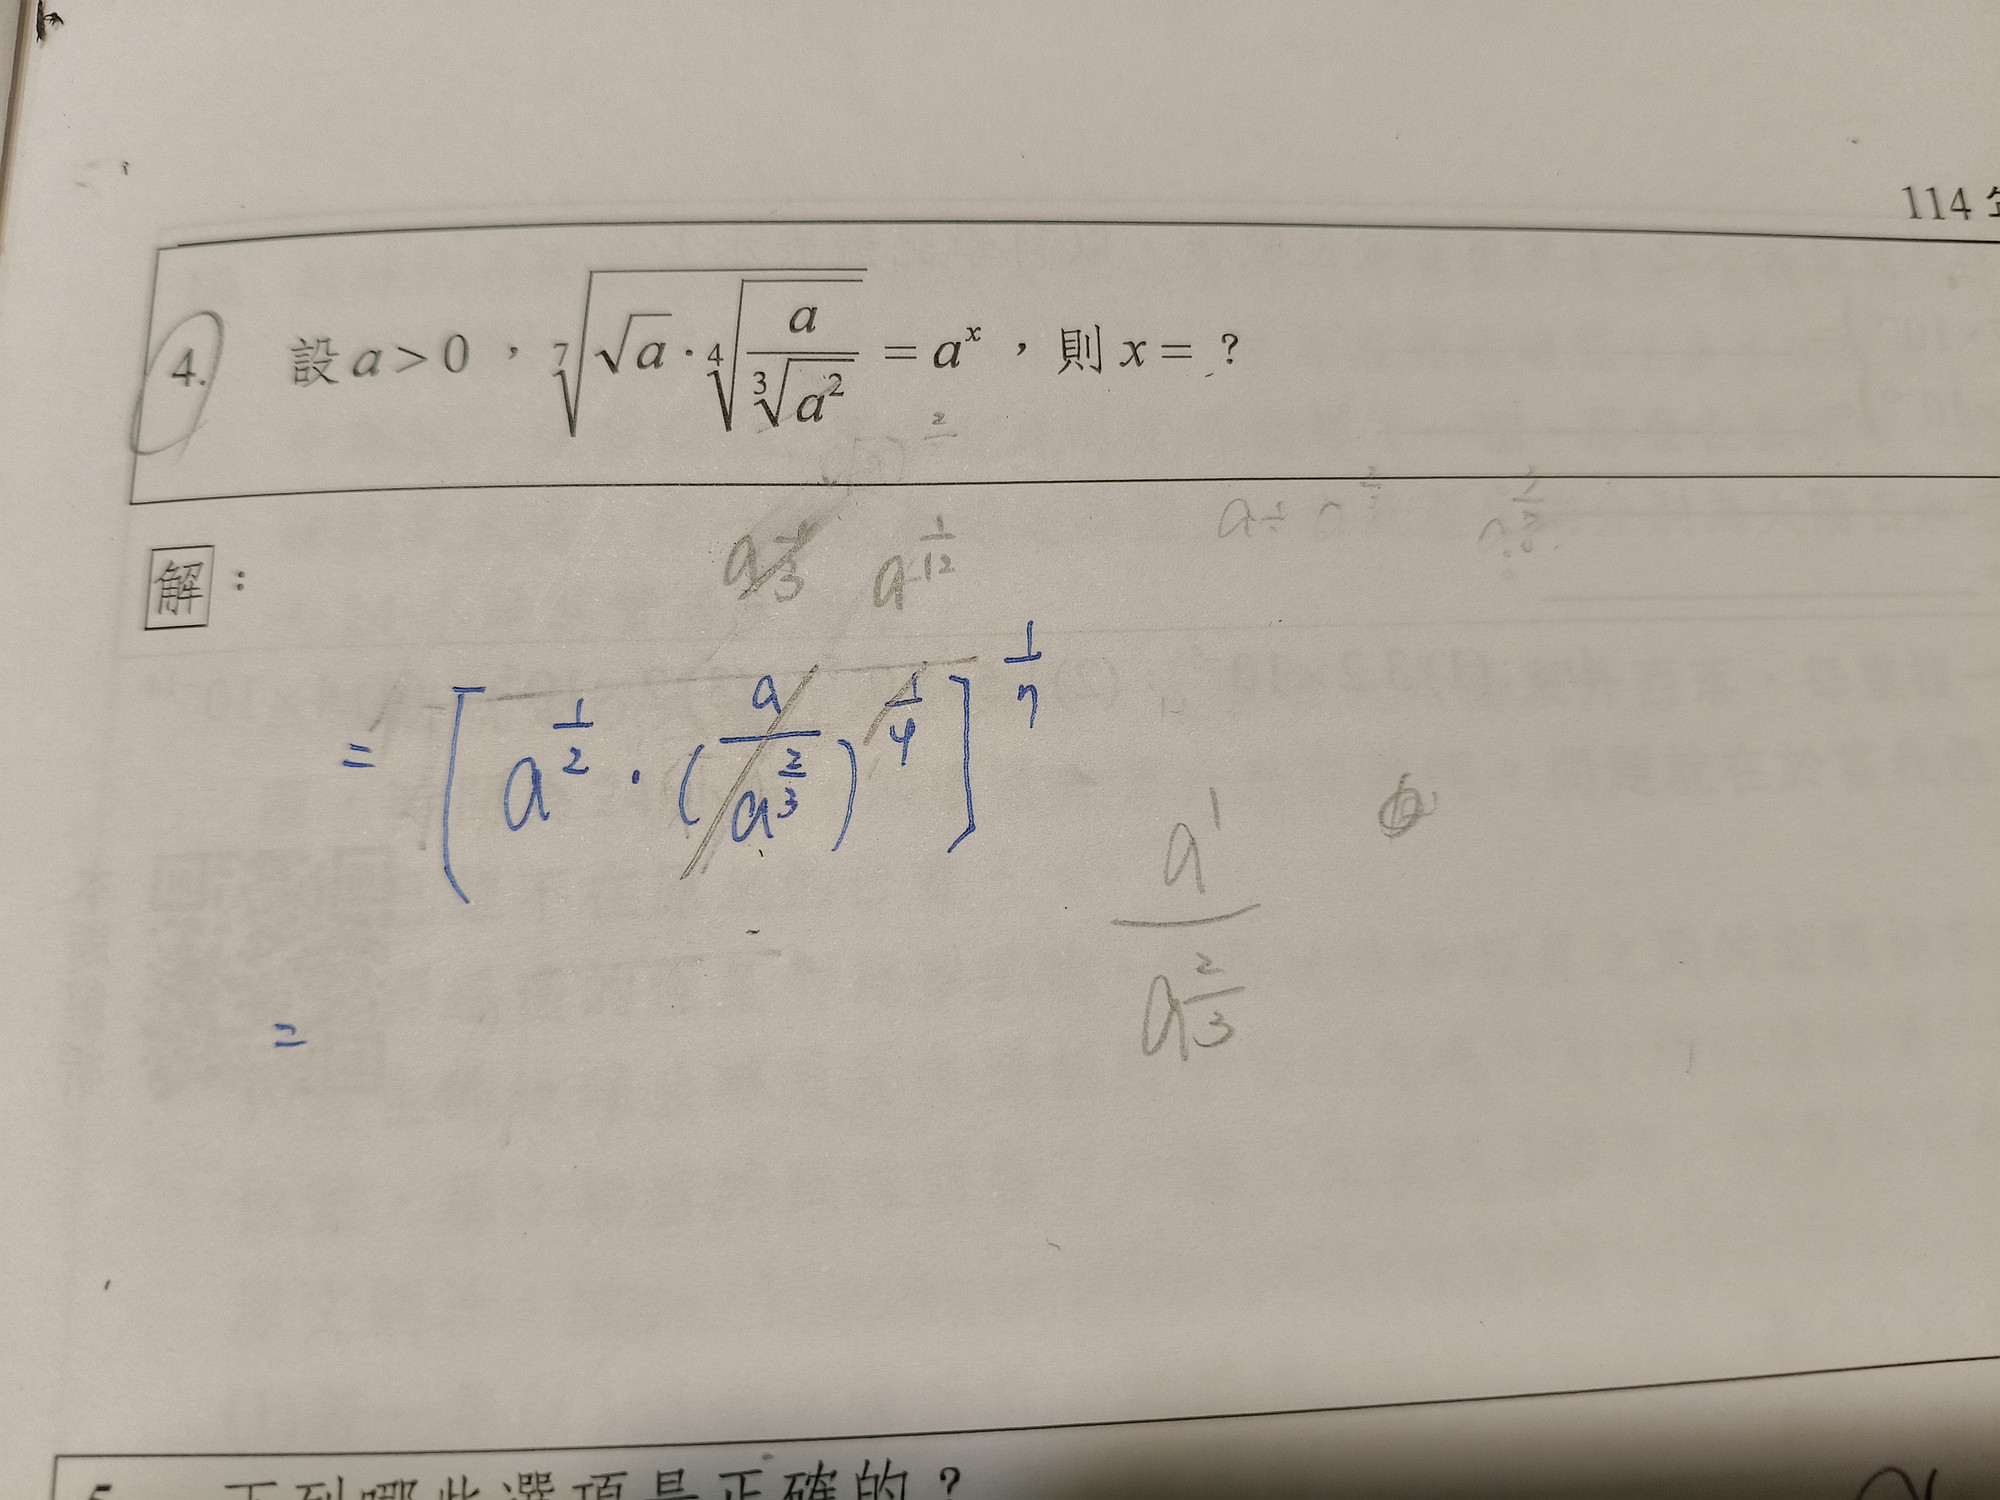 114
4. 設 a > 0 ，\sqrt[7]{\sqrt{a} \cdot \sqrt[4]{\frac{a}{\sqrt[3]{a^2}}}} = a^x ，則 x = ?
解：
a^{\frac{1}{3}} a^{\frac{1}{12}}
= [a^{\frac{1}{2}} \cdot (\frac{a}{a^{\frac{2}{3}}})^{\frac{1}{4}}]^{\frac{1}{7}}
\frac{a^1}{a^{\frac{2}{3}}}
=
5. 下列哪些選項是正確的？